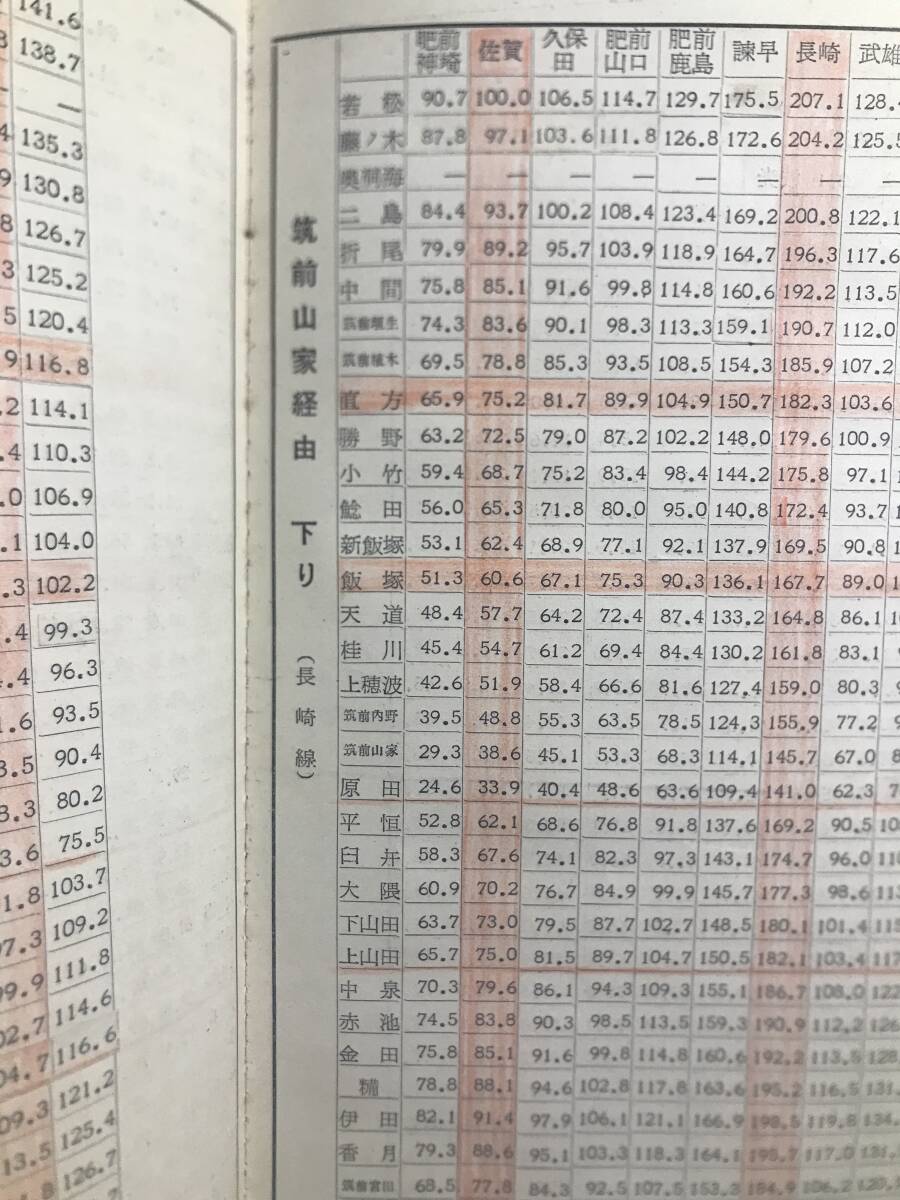 141.6
138.7
—
135.3
130.8
126.7
125.2
120.4
116.8
114.1
110.3
106.9
104.0
102.2
99.3
96.3
93.5
90.4
80.2
75.5
103.7
109.2
111.8
114.6
116.6
121.2
125.4
126.7
筑前山家経由 下り (長崎線)
肥前神埼 佐賀 久保田 肥前山口 肥前鹿島 諫早 長崎 武雄
若松 90.7 100.0 106.5 114.7 129.7 175.5 207.1 128.4
藤ノ木 87.8 97.1 103.6 111.8 126.8 172.6 204.2 125.5
奥洞海 — — — — — — — —
二島 84.4 93.7 100.2 108.4 123.4 169.2 200.8 122.1
折尾 79.9 89.2 95.7 103.9 118.9 164.7 196.3 117.6
中間 75.8 85.1 91.6 99.8 114.8 160.6 192.2 113.5
筑前垣生 74.3 83.6 90.1 98.3 113.3 159.1 190.7 112.0
筑前植木 69.5 78.8 85.3 93.5 108.5 154.3 185.9 107.2
直方 65.9 75.2 81.7 89.9 104.9 150.7 182.3 103.6
勝野 63.2 72.5 79.0 87.2 102.2 148.0 179.6 100.9
小竹 59.4 68.7 75.2 83.4 98.4 144.2 175.8 97.1
鯰田 56.0 65.3 71.8 80.0 95.0 140.8 172.4 93.7
新飯塚 53.1 62.4 68.9 77.1 92.1 137.9 169.5 90.8
飯塚 51.3 60.6 67.1 75.3 90.3 136.1 167.7 89.0
天道 48.4 57.7 64.2 72.4 87.4 133.2 164.8 86.1
桂川 45.4 54.7 61.2 69.4 84.4 130.2 161.8 83.1
上穂波 42.6 51.9 58.4 66.6 81.6 127.4 159.0 80.3
筑前内野 39.5 48.8 55.3 63.5 78.5 124.3 155.9 77.2
筑前山家 29.3 38.6 45.1 53.3 68.3 114.1 145.7 67.0
原田 24.6 33.9 40.4 48.6 63.6 109.4 141.0 62.3
平恒 52.8 62.1 68.6 76.8 91.8 137.6 169.2 90.5
臼井 58.3 67.6 74.1 82.3 97.3 143.1 174.7 96.0
大隈 60.9 70.2 76.7 84.9 99.9 145.7 177.3 98.6
下山田 63.7 73.0 79.5 87.7 102.7 148.5 180.1 101.4
上山田 65.7 75.0 81.5 89.7 104.7 150.5 182.1 103.4
中泉 70.3 79.6 86.1 94.3 109.3 155.1 186.7 108.0
赤池 74.5 83.8 90.3 98.5 113.5 159.3 190.9 112.2
金田 75.8 85.1 91.6 99.8 114.8 160.6 192.2 113.5
糒 78.8 88.1 94.6 102.8 117.8 163.6 195.2 116.5
伊田 82.1 91.4 97.9 106.1 121.1 166.9 198.5 119.8
香月 79.3 88.6 95.1 103.3 118.3 164.1 195.7 117.0
筑前宮田 68.5 77.8 84.3 92.5 107.5 153.3 184.9 106.2